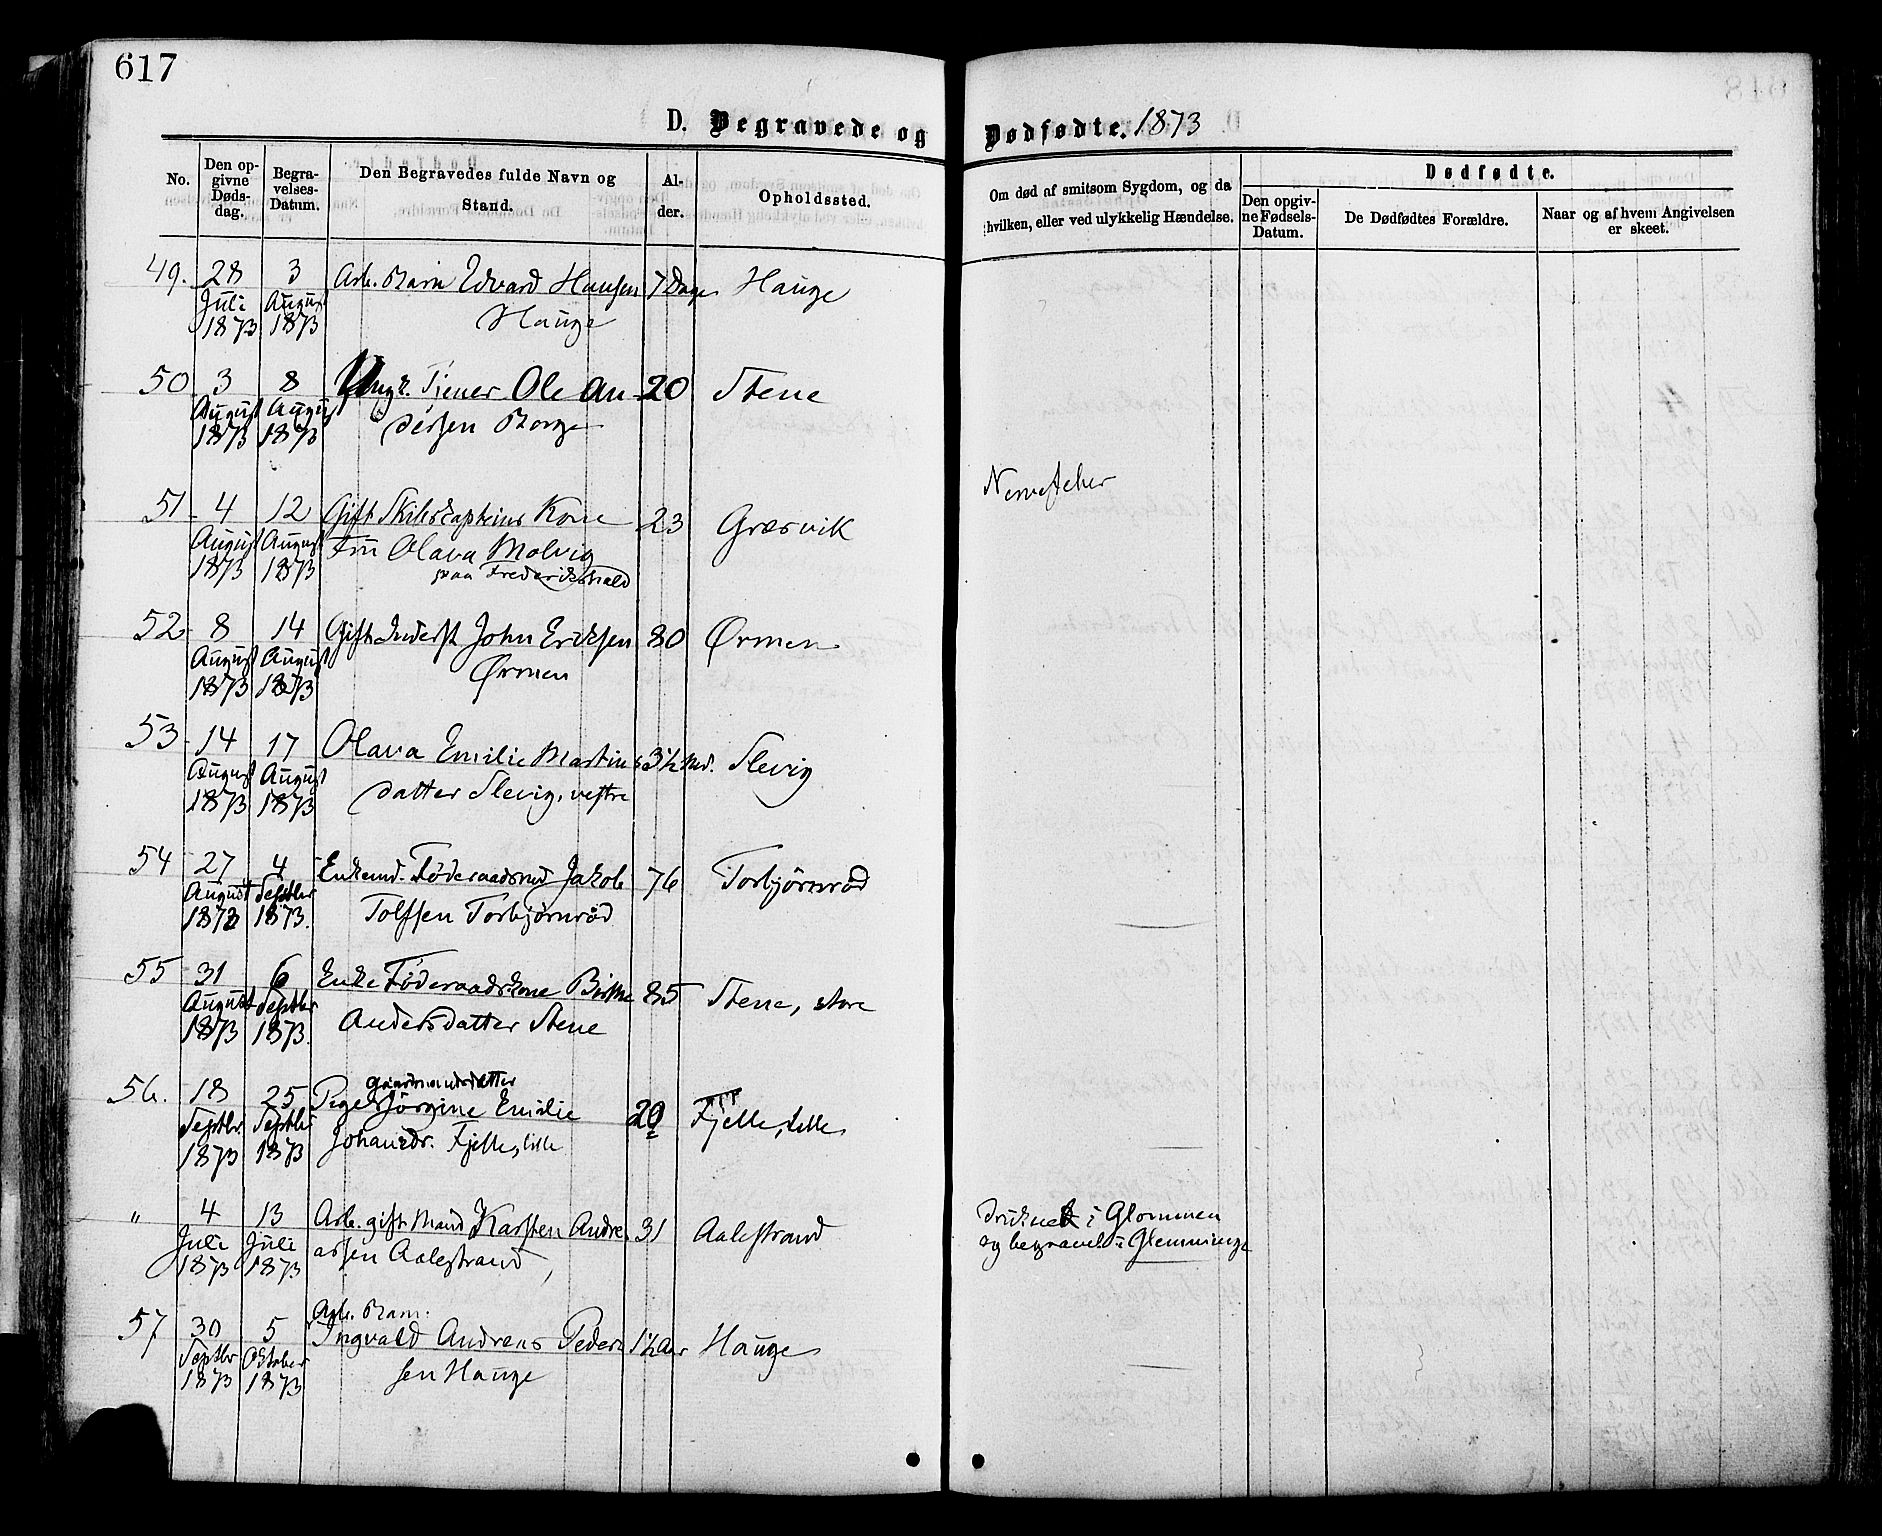 617
D. Begravede og Dødfødte. 1873
No.
Den opgivne Dødsdag.
Begravelses-Datum.
Den Begravedes fulde Navn og Stand.
Alder.
Opholdssted.
Om død af smitsom Sygdom, og da hvilken, eller ved ulykkelig Hændelse.
Dødfødte.
Den opgivne Fødsels-Datum.
De Dødfødtes Forældre.
Naar og af hvem Angivelsen er skeet.
49. 28 3 Arb. Barn Edvard Hansen 7 Dage Hauge
Juli August Hauge
1873 1873
50 3 8 Ungk. Tjener Ole An- 20 Stene
August August dersen Borge
1873 1873
Nervefeber
51 4 12 Gift Skibscapteins Kone 23 Græsvik
August August Fru Olava Molvig
1873 1873 paa Frederikshald
52 8 14 Gift Inderst John Eriksen 80 Ørmen
August August Ørmen
1873 1873
53 14 17 Olava Emilie Martins 3½ Md. Slevig
August August datter Slevig, vestre
1873 1873
54 27 4 Enkemd. Føderaadsmd Jakob 76 Torbjørnrød
August Septbr Tolfsen Torbjørnrød
1873 1873.
55 31 6 Enke Føderaadskone Birthe 85 Stene, store
August Septbr Andersdatter Stene
1873 1873.
gaardmandsdatter
56. 18 25 Pige Jørgine Emilie 20 Fjelle, lille
Septbr. Septbr Johansdr. Fjelle, lille
1873 1873
" 4 13 Arb. gift Mand Karsten Andre 31 Aalestrand druknet i Glommen
Juli Juli assen Aalestrand, og begravet i Glemminge
1873 1873
Arb. Barn.
57 30 5 Ingvald Andreas Peder 1½ Aar Hauge
Septbr Oktober sen Hauge
1873 1873